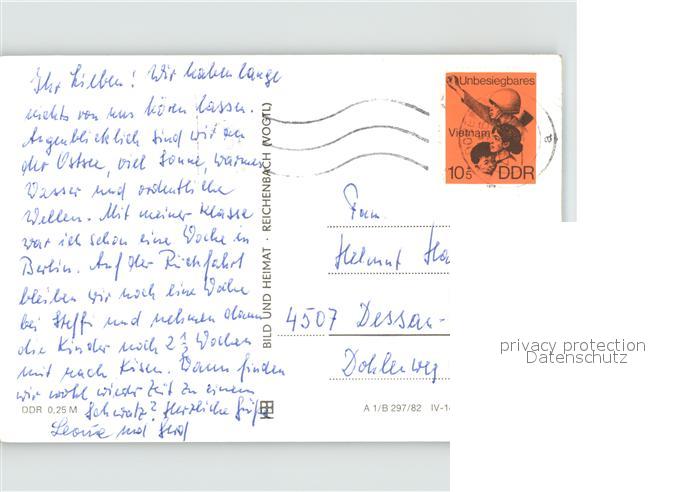 Ihr Lieben! Wir haben lange
nichts von uns hören lassen.
Augenblicklich sind wir an
der Ostsee, viel Sonne, warmes
Wasser und ordentliche
Wellen. Mit meiner Klasse
war ich schon eine Woche in
Berlin. Auf der Rückfahrt
bleiben wir noch eine Woche
bei Steffi und nehmen dann
die Kinder noch 2 1/2 Wochen
mit nach Kösen. Wann finden
wir wohl wieder Zeit zu einem
Schwatz? Herzliche Grüße
und
DDR 0,25 M
BILD UND HEIMAT · REICHENBACH (VOGTL)
Unbesiegbares
Vietnam
10+5 DDR
Fam.
Helmut
4507 Dessau-
Dohlenweg
A 1/B 297/82 IV-14
privacy protection
Datenschutz